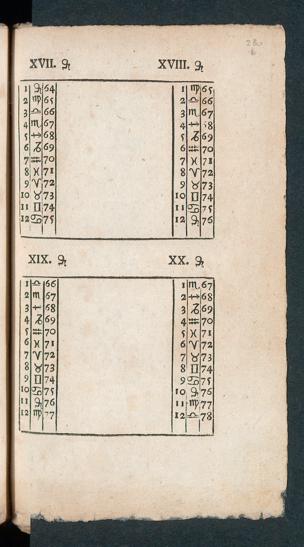 XVII. ♌ XVIII. ♌
1 ♌ 64 1 ♍ 65
2 ♍ 65 2 ♎ 66
3 ♎ 66 3 ♏ 67
4 ♏ 67 4 ♐ 8
5 ♐ 68 5 ♑ 69
6 ♑ 69 6 ♒ 70
7 ♒ 70 7 ♓ 71
8 ♓ 71 8 ♈ 72
9 ♈ 72 9 ♉ 73
10 ♉ 73 10 ♊ 74
11 ♊ 74 11 ♋ 75
12 ♋ 75 12 ♌ 76
XIX. ♌ XX. ♌
1 ♎ 66 1 ♏ 67
2 ♏ 67 2 ♐ 68
3 ♐ 68 3 ♑ 69
4 ♑ 69 4 ♒ 70
5 ♒ 70 5 ♓ 71
6 ♓ 71 6 ♈ 72
7 ♈ 72 7 ♉ 73
8 ♉ 73 8 ♊ 74
9 ♊ 74 9 ♋ 75
10 ♋ 75 10 ♌ 76
11 ♌ 76 11 ♍ 77
12 ♍ 77 12 ♎ 78